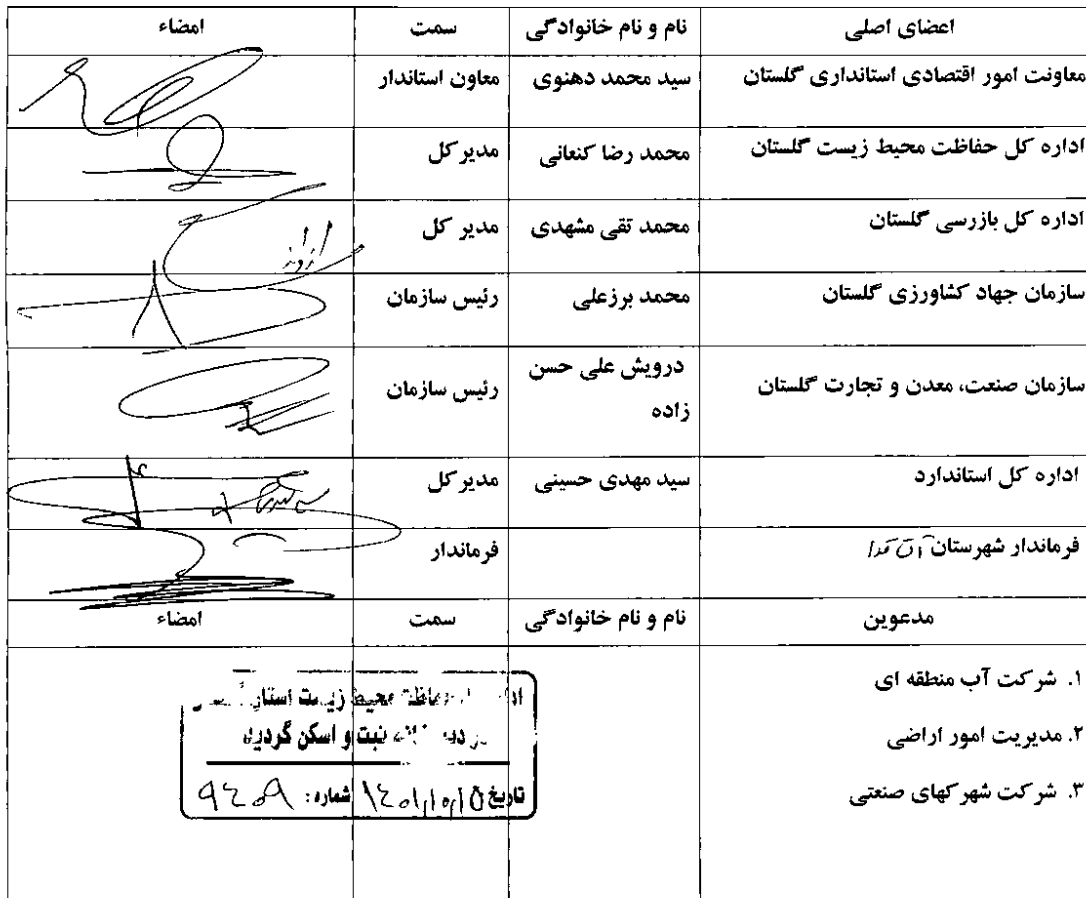 اعضای اصلی نام و نام خانوادگی سمت امضاء
معاونت امور اقتصادی استانداری گلستان سید محمد دهنوی معاون استاندار
اداره کل حفاظت محیط زیست گلستان محمد رضا کنعانی مدیر کل
اداره کل بازرسی گلستان محمد تقی مشهدی مدیر کل
سازمان جهاد کشاورزی گلستان محمد برزعلی رئیس سازمان
سازمان صنعت، معدن و تجارت گلستان درویش علی حسن رئیس سازمان
زاده
اداره کل استاندارد سید مهدی حسینی مدیر کل
فرماندار شهرستان فرماندار
مدعوین نام و نام خانوادگی سمت امضاء
۱. شرکت آب منطقه ای
۲. مدیریت امور اراضی
۳. شرکت شهرکهای صنعتی
محیط زیست استان
ثبت و اسکن گردید
تاریخ ۱۴۰۱/۱۰/۱۵ شماره: